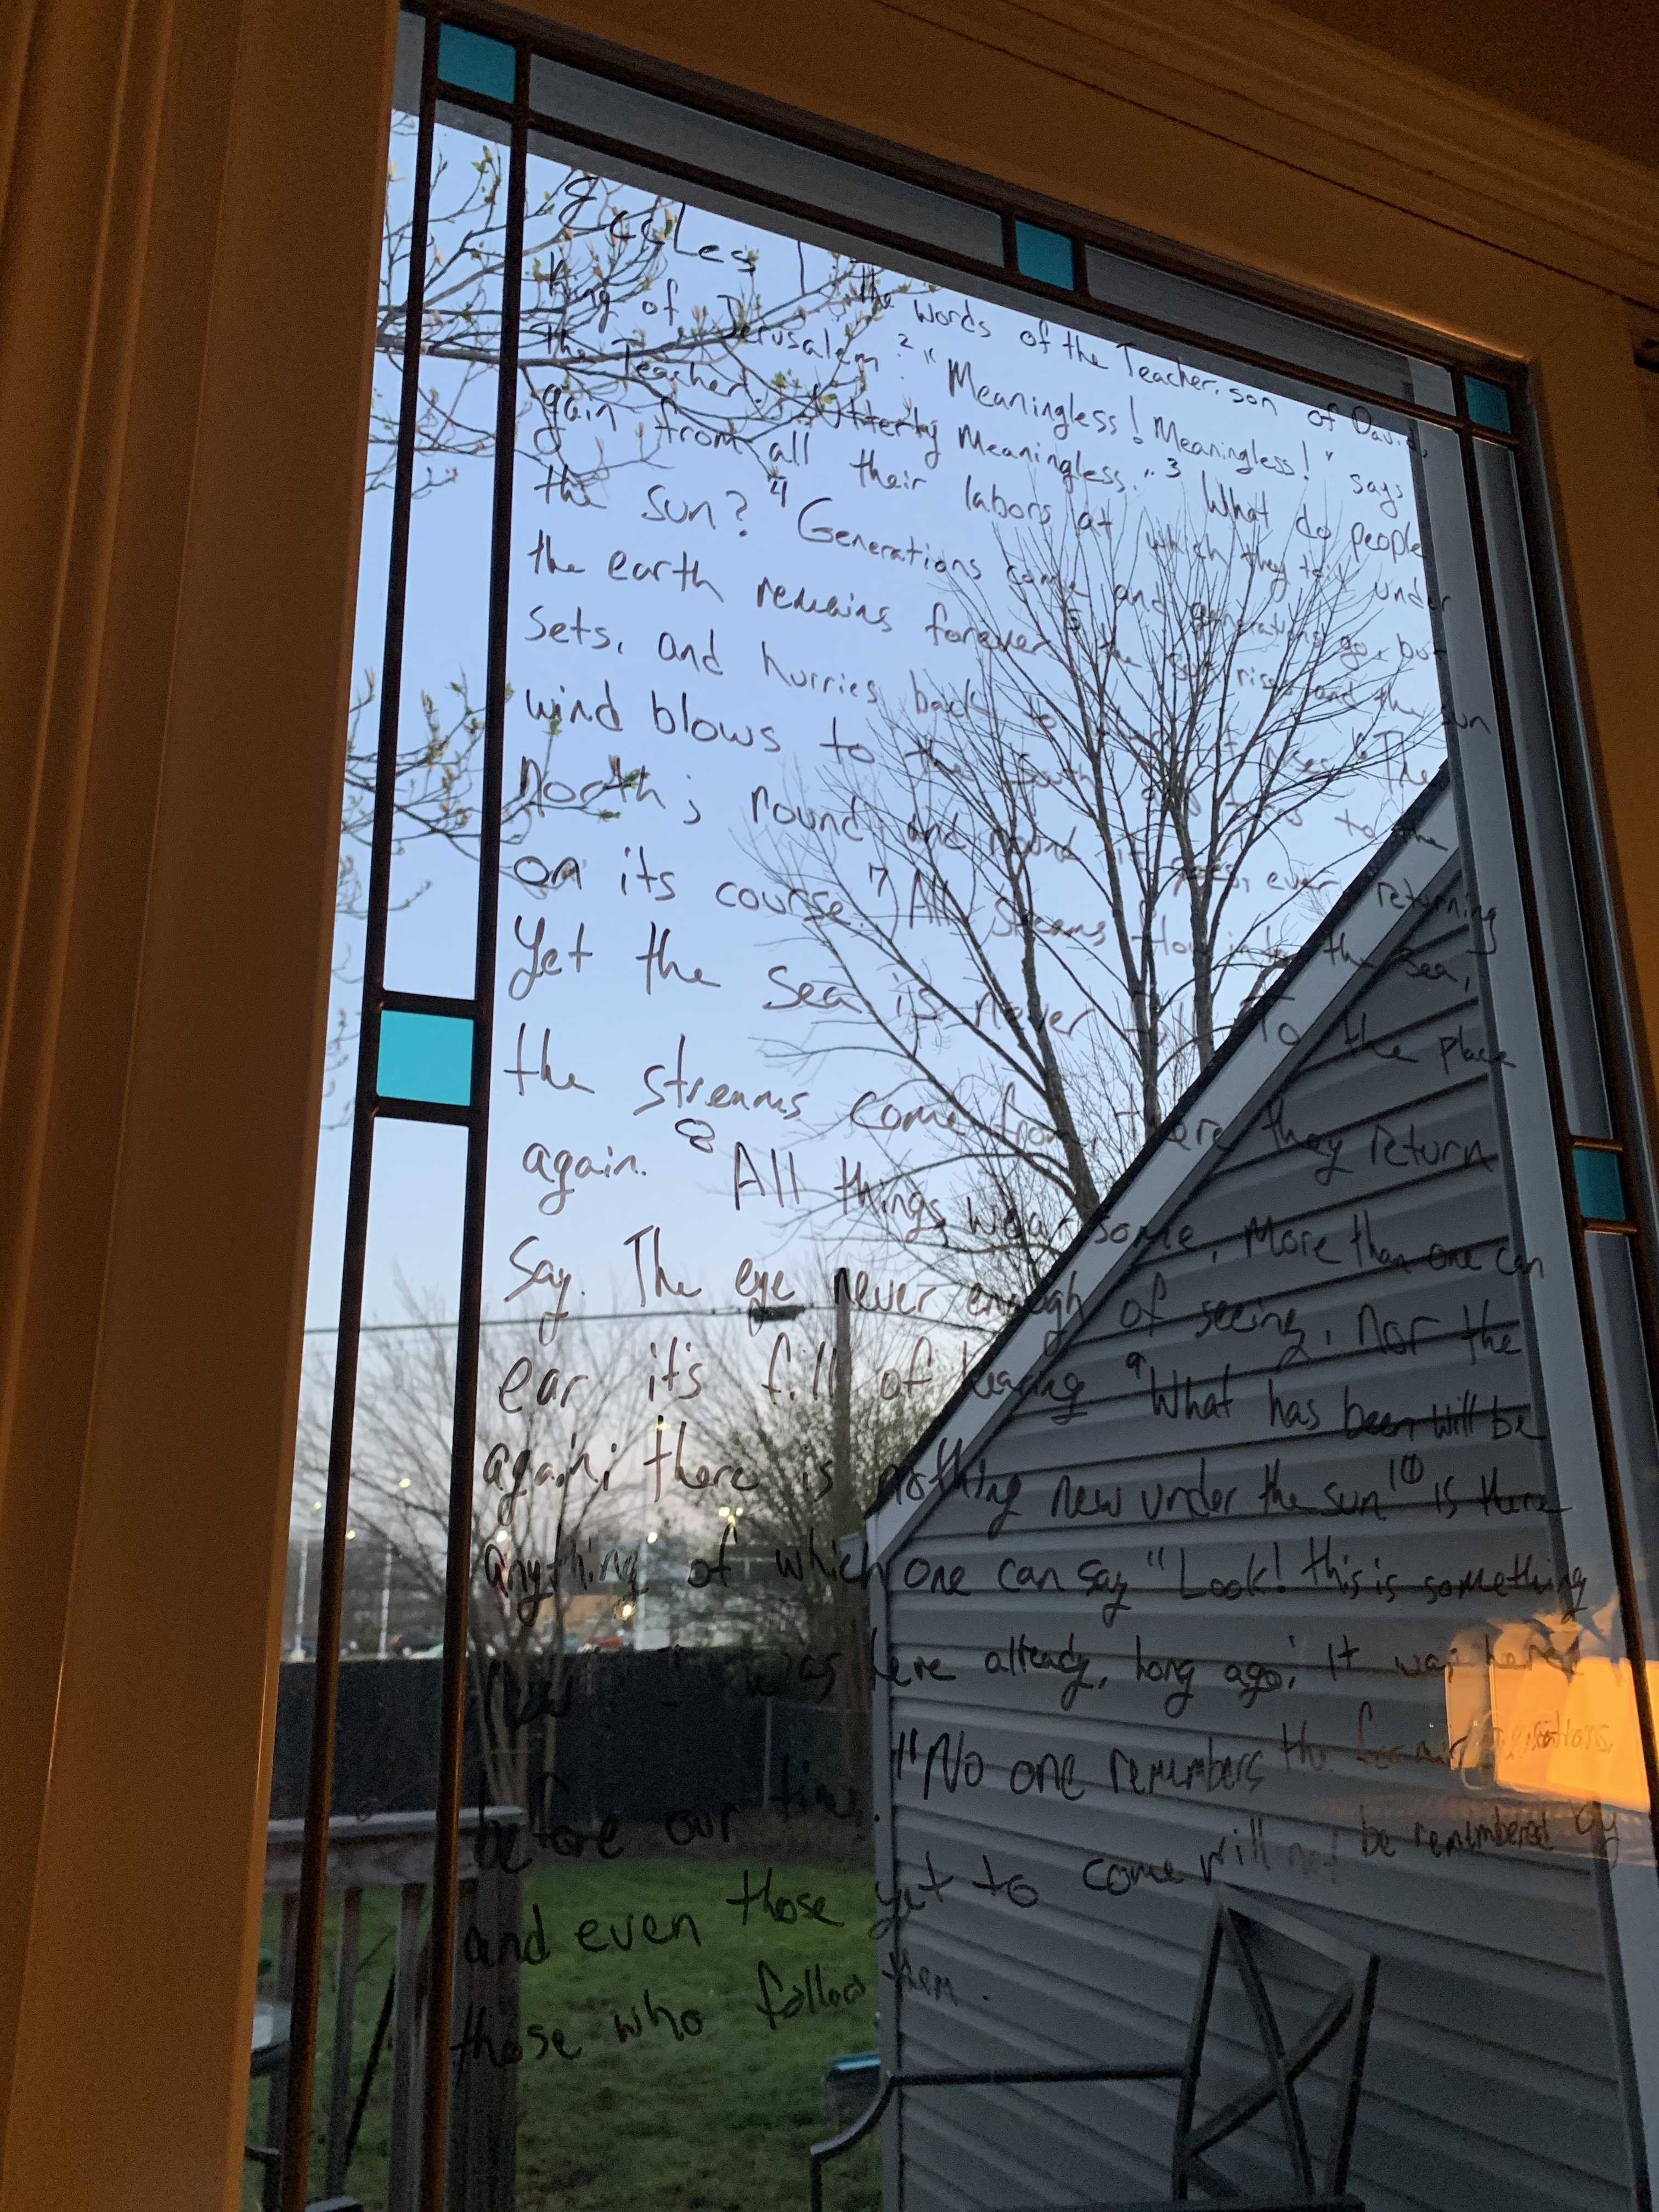 Eccles 1 the words of the Teacher, son of David,
King of Jerusalem 2 "Meaningless! Meaningless!" says
the Teacher. "Utterly Meaningless." 3 What do people
gain from all their labors at which they toil under
the sun? 4 Generations come and generations go, but
the earth remains forever 5 the sun rises and the sun
Sets, and hurries back to rises 6 The
wind blows to the south to the
North; round and round it goes, ever returning
on its course. 7 All streams flow into the sea,
Yet the sea is never To the place
the streams come from, there they return
again. 8 All things wearsome, More than one can
Say. The eye never enough of seeing, Nor the
ear it's fill of hearing 9 What has been will be
again; there is nothing new under the sun 10 is there
anything of which one can say "Look! this is something
New was here already, long ago; it was here
before our time. 11 No one remembers the former generations,
and even those yet to come will not be remembered by
those who follow them.